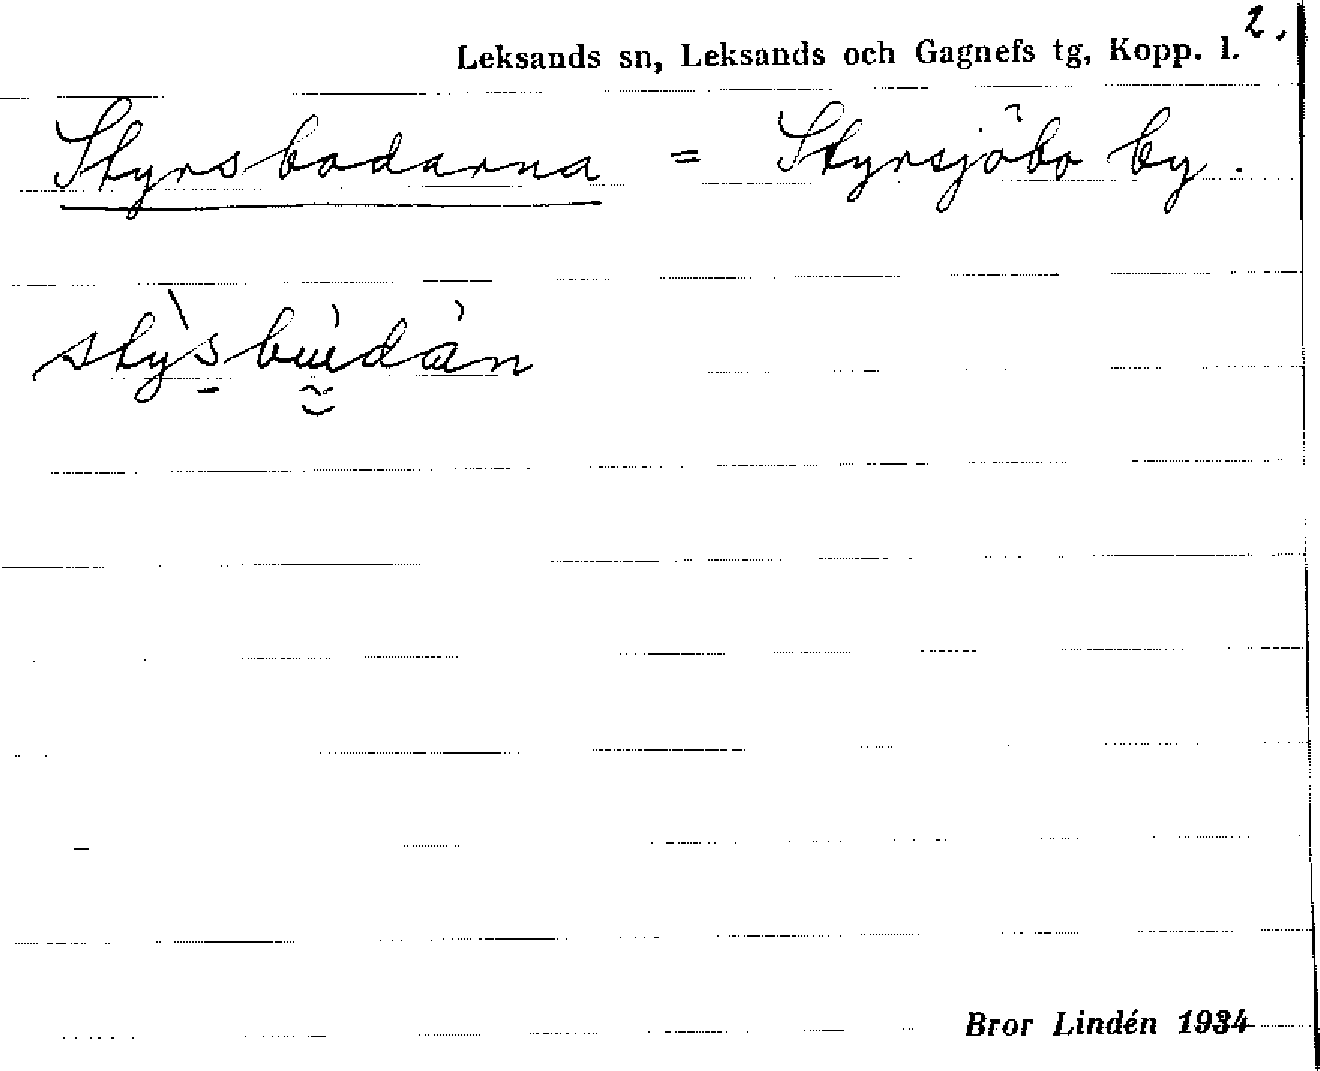 2.
Leksands sn, Leksands och Gagnefs tg, Kopp. l.
Styrsbodarna = Styrsjöbo by.
stỳsbùdàn
Bror Lindén 1934